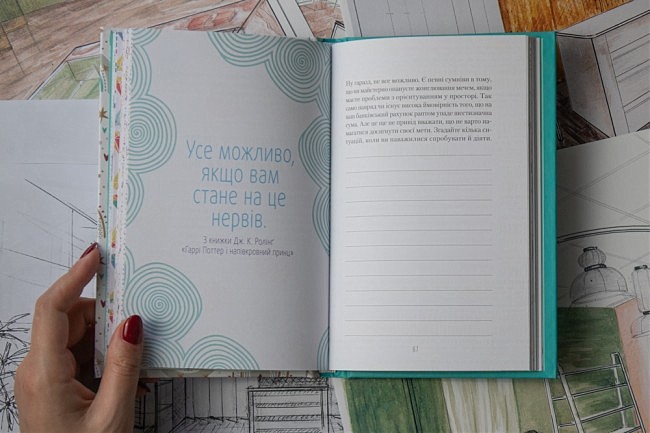 Усе можливо,
якщо вам
стане на це
нервів.
З книжки Дж. К. Ролінґ
«Гаррі Поттер і напівкровний принц»
Ну гаразд, не все можливо. Є певні сумніви в тому,
що ви майстерно опануєте жонглювання мечем, якщо
маєте проблеми з орієнтуванням у просторі. Так
само навряд чи існує висока ймовірність того, що на
ваш банківський рахунок раптом упаде шестизначна
сума. Але це ще не привід вважати, що не варто на-
магатися досягнути своєї мети. Згадайте кілька си-
туацій, коли ви наважилися спробувати й діяти.
87